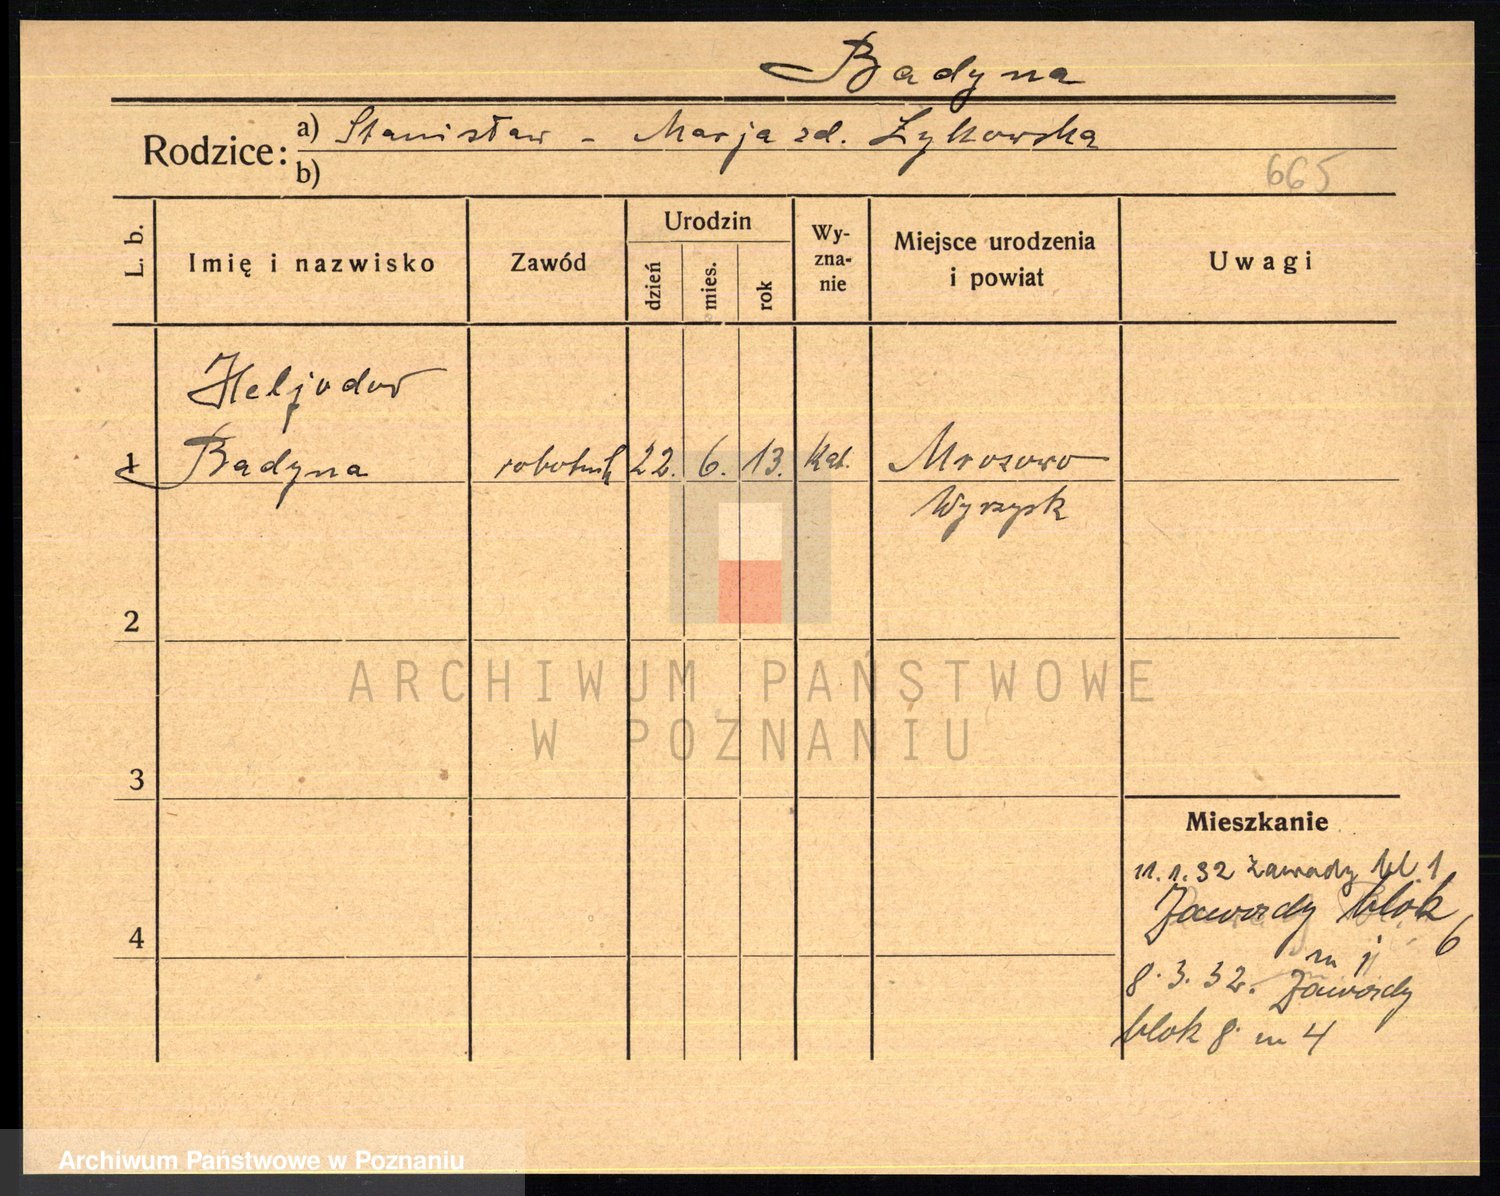 Badyna
Rodzice: a) Stanisław - Marja zd. Żykowska
b)
665
L. b.
Imię i nazwisko
Zawód
Urodzin
dzień
mies.
rok
Wy-
zna-
nie
Miejsce urodzenia
i powiat
Uwagi
Heljodor
1 Badyna robotnik 22. 6. 13. Kat. Mrozowo
Wyrzysk
2
ARCHIWUM PAŃSTWOWE
W POZNANIU
3
4
Mieszkanie
11.1.32 Zawady bl. 1
Zawady blok 6
8.3.32. Zawady
blok 8 m 4
Archiwum Państwowe w Poznaniu